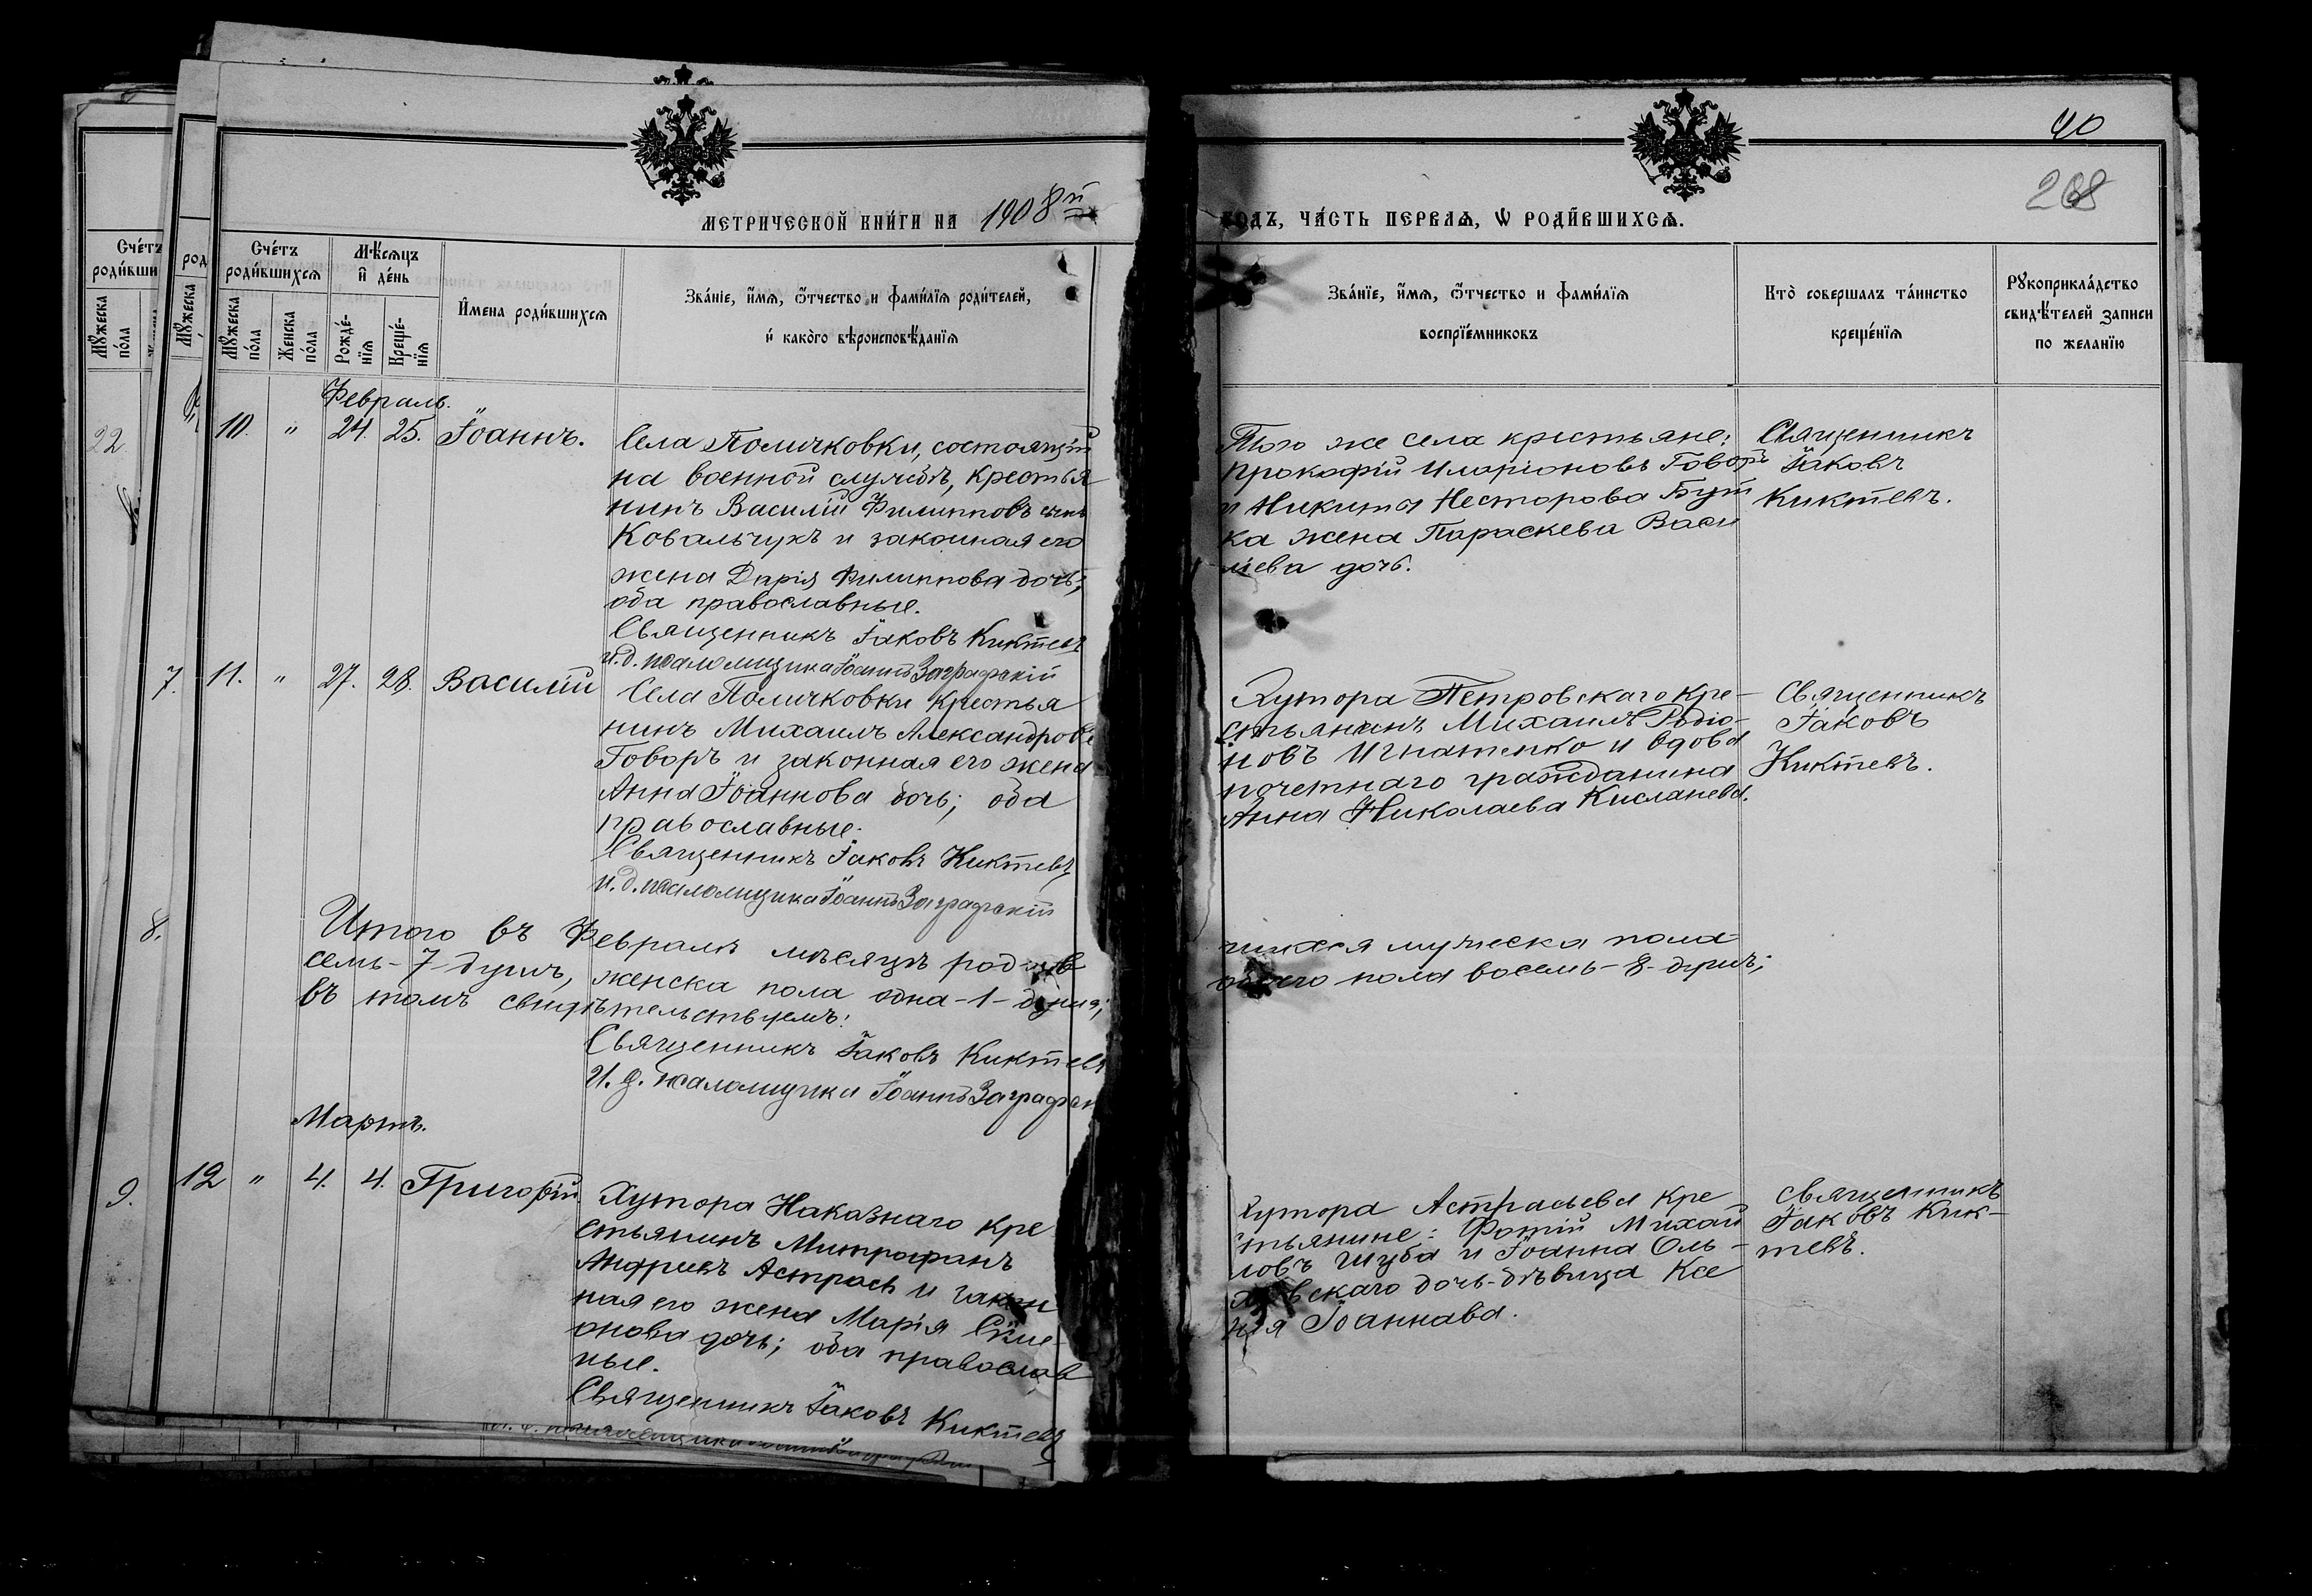 40
268
МЕТРИЧЕСКОЙ КНИ́ГИ НА 1908й
ГОДЪ, ЧА́СТЬ ПЕРВАѦ, Ѡ РОДИ́ВШИХСѦ.
Сче́тъ родивши
Мꙋжеска по́ла
род
Мꙋжеска
Сче́тъ роди́вшихсѧ
Мꙋжеска по́ла
Женска по́ла
Мѣ́сѧцъ и де́нь
Рожде́-нїѧ
Креще́-нїѧ
И́мена роди́вшихсѧ
Зва́нїе, и́мѧ, ѻ́тчество и фами́лїѧ роди́телей,
и како́го вѣроисповѣ́данїѧ
Зва́нїе, и́мѧ, ѻ́тчество и фами́лїѧ
воспрїе́мниковъ
Кто̀ совершалъ та́инство
креще́нїѧ
Рꙋкоприкла́дство
свидѣ́телей записи
по желанїю
22
7.
8.
9.
Февраль.
10. " 24. 25. Іоаннъ.
Села Поличковки, состоящій
на военной службѣ, крестья
нинъ Василій Филипповъ сынъ
Ковальчукъ и законная его
жена Дарія Филиппова дочь;
оба православные.
Священникъ Іаковъ Киктевъ
И.д. псаломщика Іоаннъ Заграфскій
Того же села крестьяне:
Прокофій Иларіоновъ Говоръ
и Никиты Несторова Бут
ка жена Параскева Васи
лiева дочь.
Священникъ
Іаковъ
Киктевъ.
11. " 27. 28. Василій
Села Поличковки крестья
нинъ Михаилъ Александровъ
Говоръ и законная его жена
Анна Іоаннова дочь; оба
православные.
Священникъ Іаковъ Киктевъ
И.д. псаломщика Іоаннъ Заграфскій
Хутора Петровскаго кре-
стьянинъ Михаилъ Родіо-
новъ Игнатенко и вдова
почетнаго гражданина
Анна Николаева
Священникъ
Іаковъ
Киктевъ.
Итого въ Февралѣ мѣсяцѣ родив
шихся мужеска пола
семь-7-душъ, женска пола одна-1-душа;
обоего пола восемь-8-душъ;
въ томъ свидѣтельствуемъ:
Священникъ Іаковъ Киктевъ
И.д. псаломщика Іоаннъ Заграфск
Мартъ.
12 " 4. 4. Григорій.
Хутора Наказнаго кре
стьянинъ Митрофанъ
Андреевъ Астрась и закон
ная его жена Марія Симе-
онова дочь; оба православ
ные.
Священникъ Іаковъ Киктевъ
Хутора Астрасьева кре
стьянине: Фотій Михай
ловъ Шуба и Іоанна Оль-
скаго дочь-дѣвица Ксе
нія Іоаннава.
Священникъ
Іаковъ Кик-
тевъ.